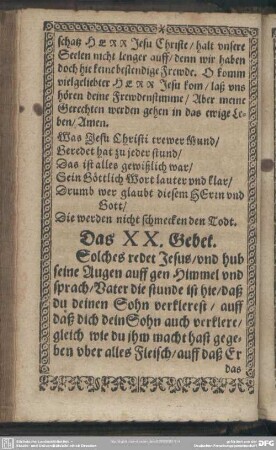 schatz HERR Jesu Christe/ halt vnsere
Seelen nicht lenger auff/ denn wir haben
doch hie keine bestendige Frewde. O komm
vielgeliebter HERR Jesu kom/ laß vns
hören deine Frewdenstimme/ Aber meine
Gerechten werden gehen in das ewige Le-
ben/ Amen.
Was Jesu Christi trewer Mund/
Geredet hat zu jeder stund/
Das ist alles gewißlich war/
Sein Göttlich Wort lauter vnd klar/
Drumb wer glaubt diesem HErrn vnd
Gott/
Die werden nicht schmecken den Todt.
Das XX. Gebet.
Solches redet Jesus/ vnd hub
seine Augen auff gen Himmel vnd
sprach/ Vater die stunde ist hie/ daß
du deinen Sohn verklerest/ auff
daß dich dein Sohn auch verklere/
gleich wie du jhm macht hast gege-
ben vber alles Fleisch/ auff daß Er
das